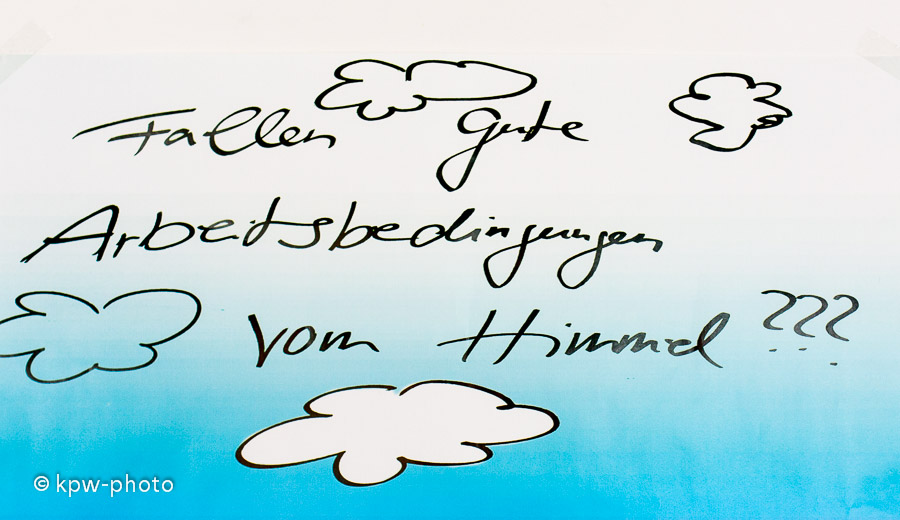 Fallen Gute
Arbeitsbedingungen
vom Himmel ???
© kpw-photo